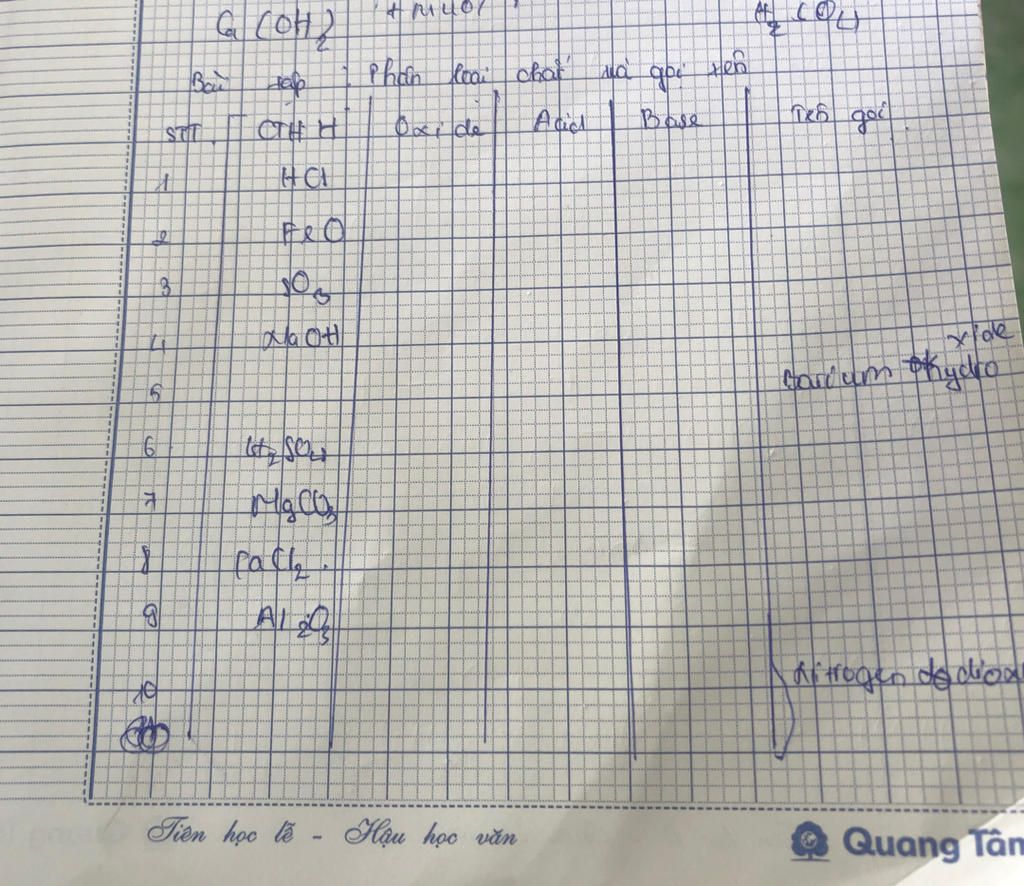 Ca(OH)2
Bài tập : Phân loại chất và gọi tên
STT CTHH Oxide Acid Base Tên gọi
1 HCl
2 FeO
3 SO3
4 NaOH
xide
5 hydro
6 H2SO4
7 MgCO3
8 CaCl2.
9 Al2O3
10 Nitrogen diox
Tiên học lễ - Hậu học văn
Quang Tân